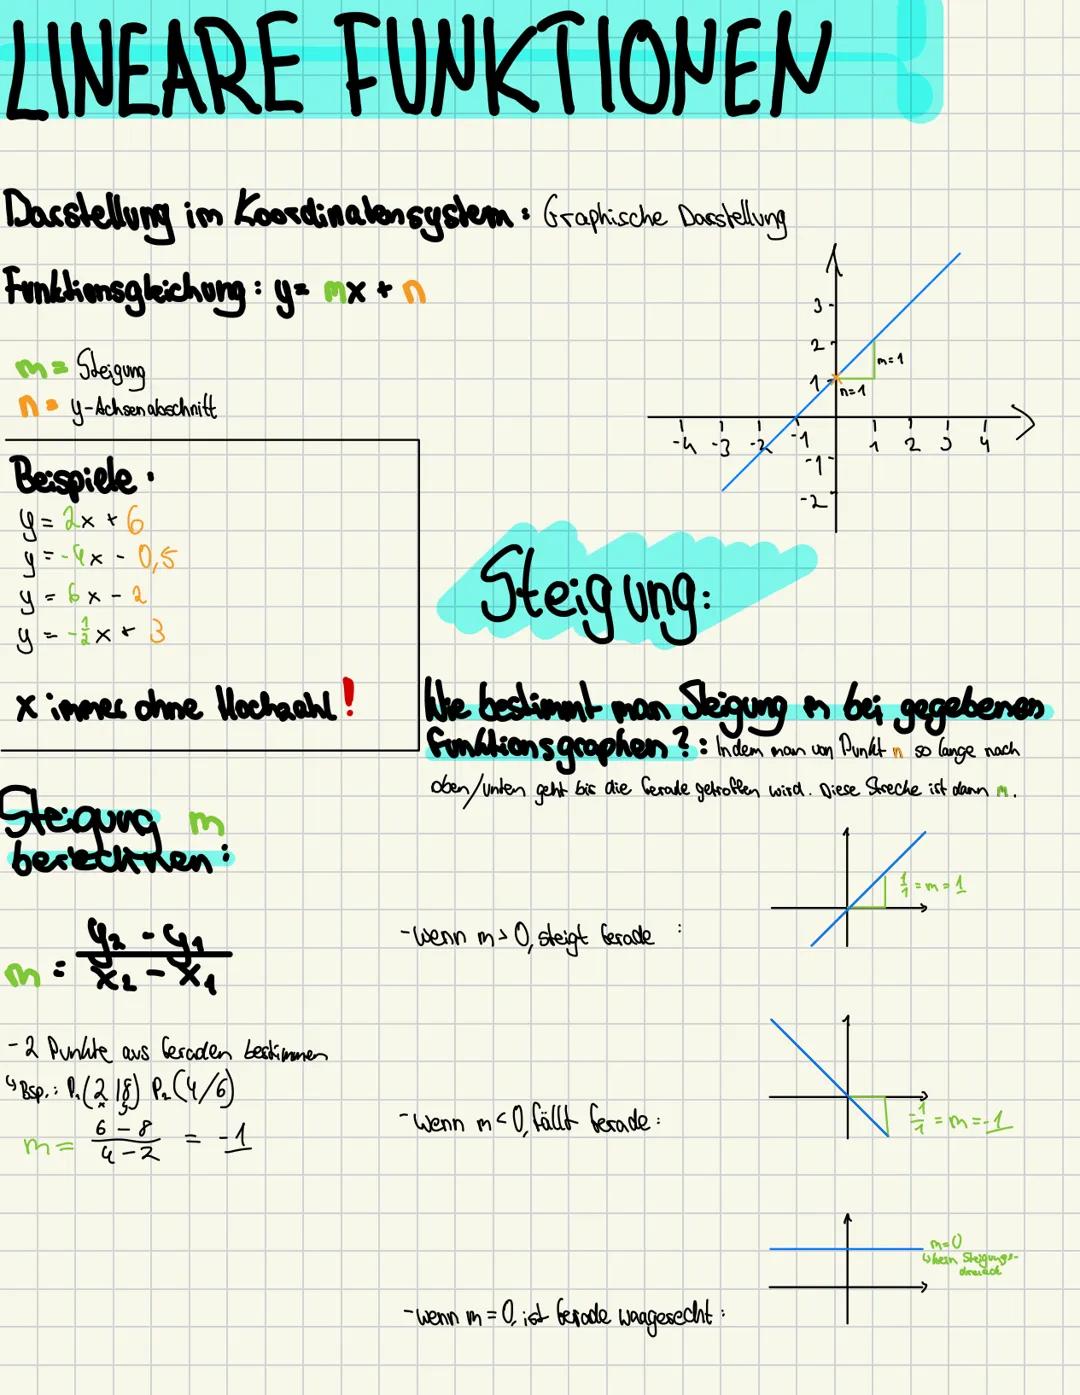 LINEARE FUNKTIONEN
Darstellung im Koordinatensystem: Graphische Darstellung
Funktionsgleichung: y= mx + n
m= Steigung
n= y-Achsenabschnitt
3
2
1
m=1
n=1
-4 -3 -2 -1 1 2 3 4
-1
-2
Beispiele:
y = 2x + 6
y = -4x - 0,5
y = 6x - 2
y = -1/2x + 3
x immer ohne Hochzahl!
Steigung:
Wie bestimmt man Steigung m bei gegebenen
Funktionsgraphen?: Indem man von Punkt n so lange nach
oben/unten geht bis die Gerade getroffen wird. Diese Strecke ist dann m.
Steigung m
berechnen:
m = y2 - y1 / x2 - x1
- 2 Punkte aus Geraden bestimmen
↳ Bsp.: P1(2|8) P2(4/6)
x y
m = 6-8 / 4-2 = -1
-wenn m>0, steigt Gerade :
1/1 = m = 1
1
-wenn m<0, fällt Gerade:
-1/1 = m = -1
-wenn m=0, ist Gerade waagerecht:
m=0
↳ kein Steigungs-
dreieck